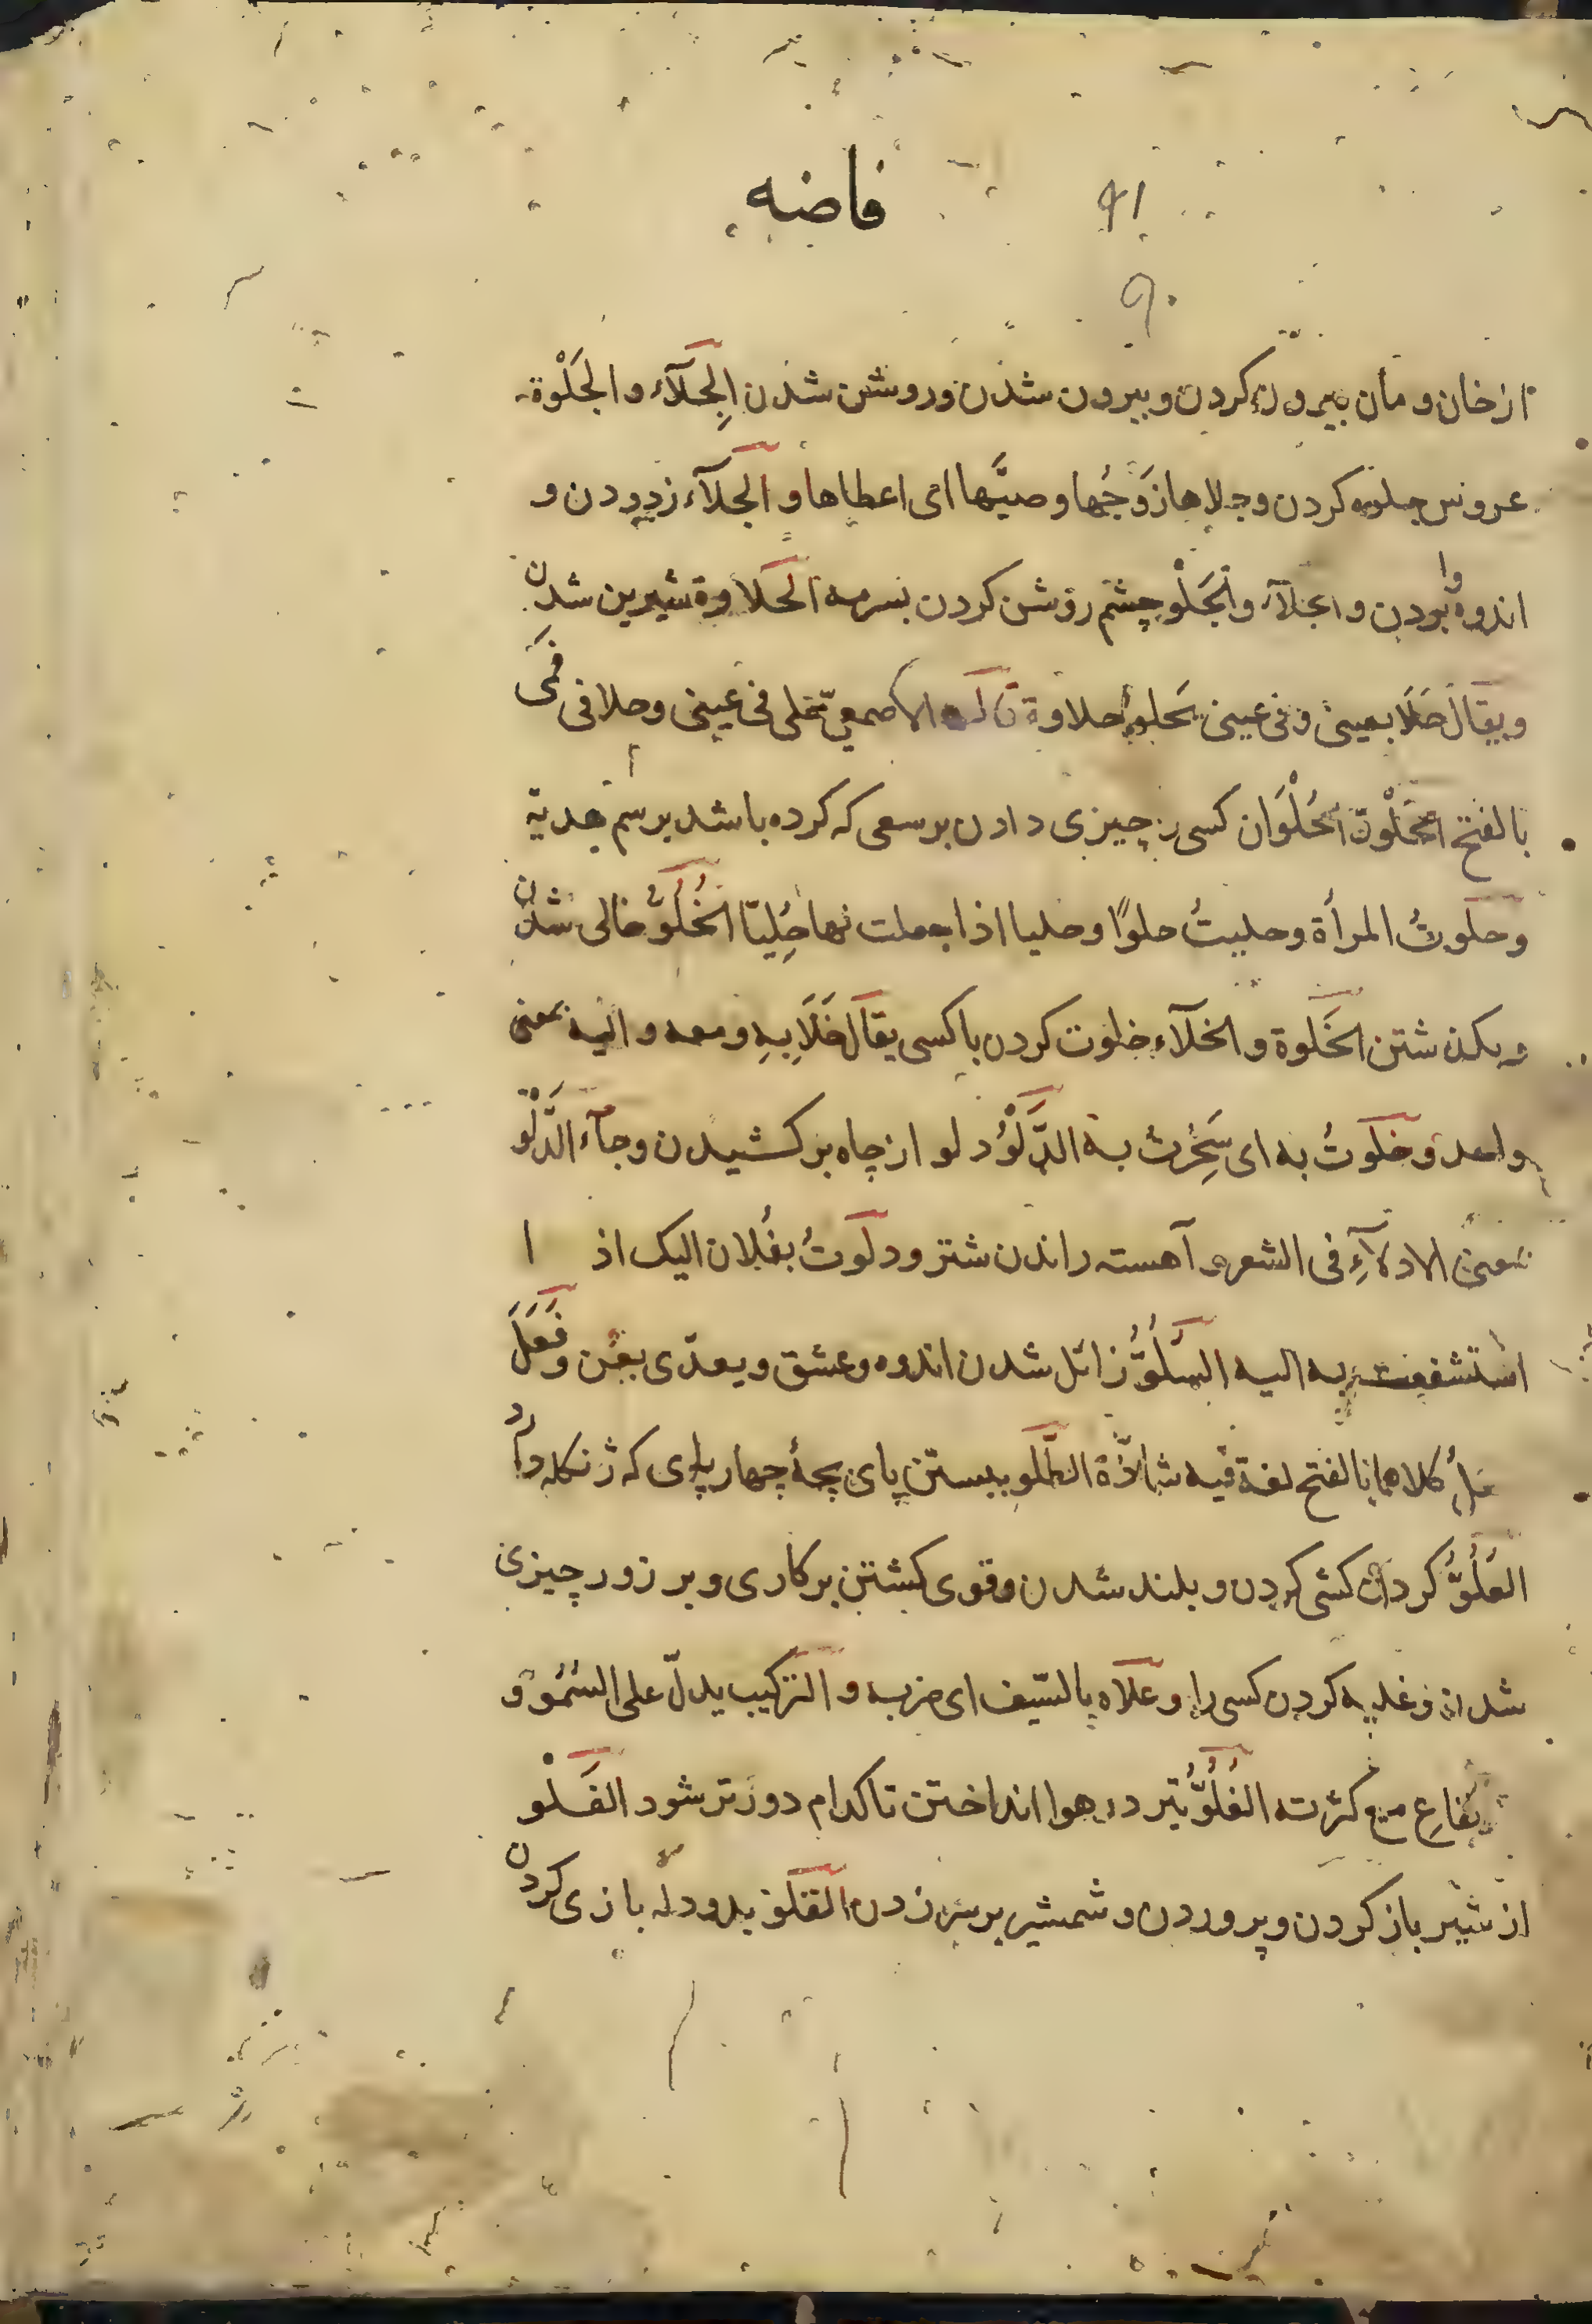 فاضه
۹۱
۹۰
از خان و مان بیرون کردن و بیرون شدن و روشن شدن الجَلآء والجَلْوة
عروس جلوه کردن وجلاها زَوجُها وصیَّها ای اعطاها والجلآء زدودن و
اندوه وا بردن والجلآء والجَلْو چشم روشن کردن بسرمه الحلاوة شیرین شدن
ویقال حَلَا بعینی وفی عینی یَحلو حلاوة قال الاصمعی حلی فی عینی وحلا فی فمی
بالفتح الحَلْوة الحُلْوَان کسی را چیزی دادن بر سعی که کرده باشد برسم هدیة
وحلوتُ المرأة وحلیتُ حلوًا وحلیا اذا جعلت لها حِلیّا الخُلُوُّ خالی شدن
و بکذشتن الخَلوة والخلآء خلوت کردن با کسی یقال خَلَا بِهِ ومعه والیه بمعنی
واحد وخلوتُ به ای سَخِرْتُ به الدَّلْوُ دلو از چاه برکشیدن وجآء الدَّلْو
بمعنی الادلآءِ فی الشعر و آهسته راندن شتر ودلوتُ بفُلان الیک اذا
استشفعت به الیه السُّلُوُّ زائل شدن اندوه وعشق ویعدّی بعَن وفَعَلَ
یفعلُ کلاهما بالفتح لغة فیه شاذّة الطَّلو ببستن پای بچۀ چهارپای که ژنکله دارد
العُلُوُّ کردن کشی کردن و بلند شدن و قوی کشتن بر کاری و بر زور چیزی
شدن و غلبه کردن کسی را وعلاه بالسّیف ای ضربه والترکیب یدلّ علی السُّمُوّ و
ارتفاعِ مع کثرته الغُلُوُّ تیر در هوا انداختن تا کدام دورتر شود الفَلْو
از شیر باز کردن و پروردن و شمشیر بر سر زدن القَلْو بدودله بازی کردن